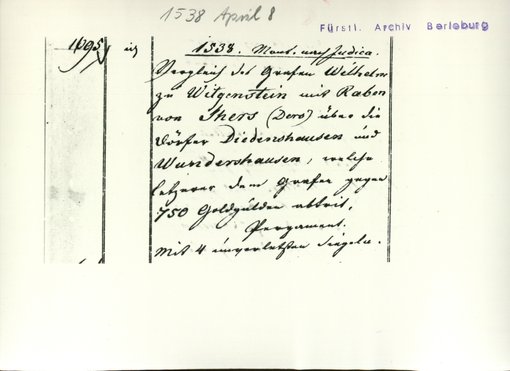 1538 April 8
Fürstl. Archiv Berleburg
1695
1538. Mont. nach Judica.
Vergleich des Grafen Wilhelm
zu Witgenstein mit Raben
von Thers (Ders) über die
Dörfer Diedenshausen und
Wundershausen, welche
letzerer dem Grafen gegen
750 Goldgülden abtrit.
Pergament.
Mit 4 unverletzten Siegeln.